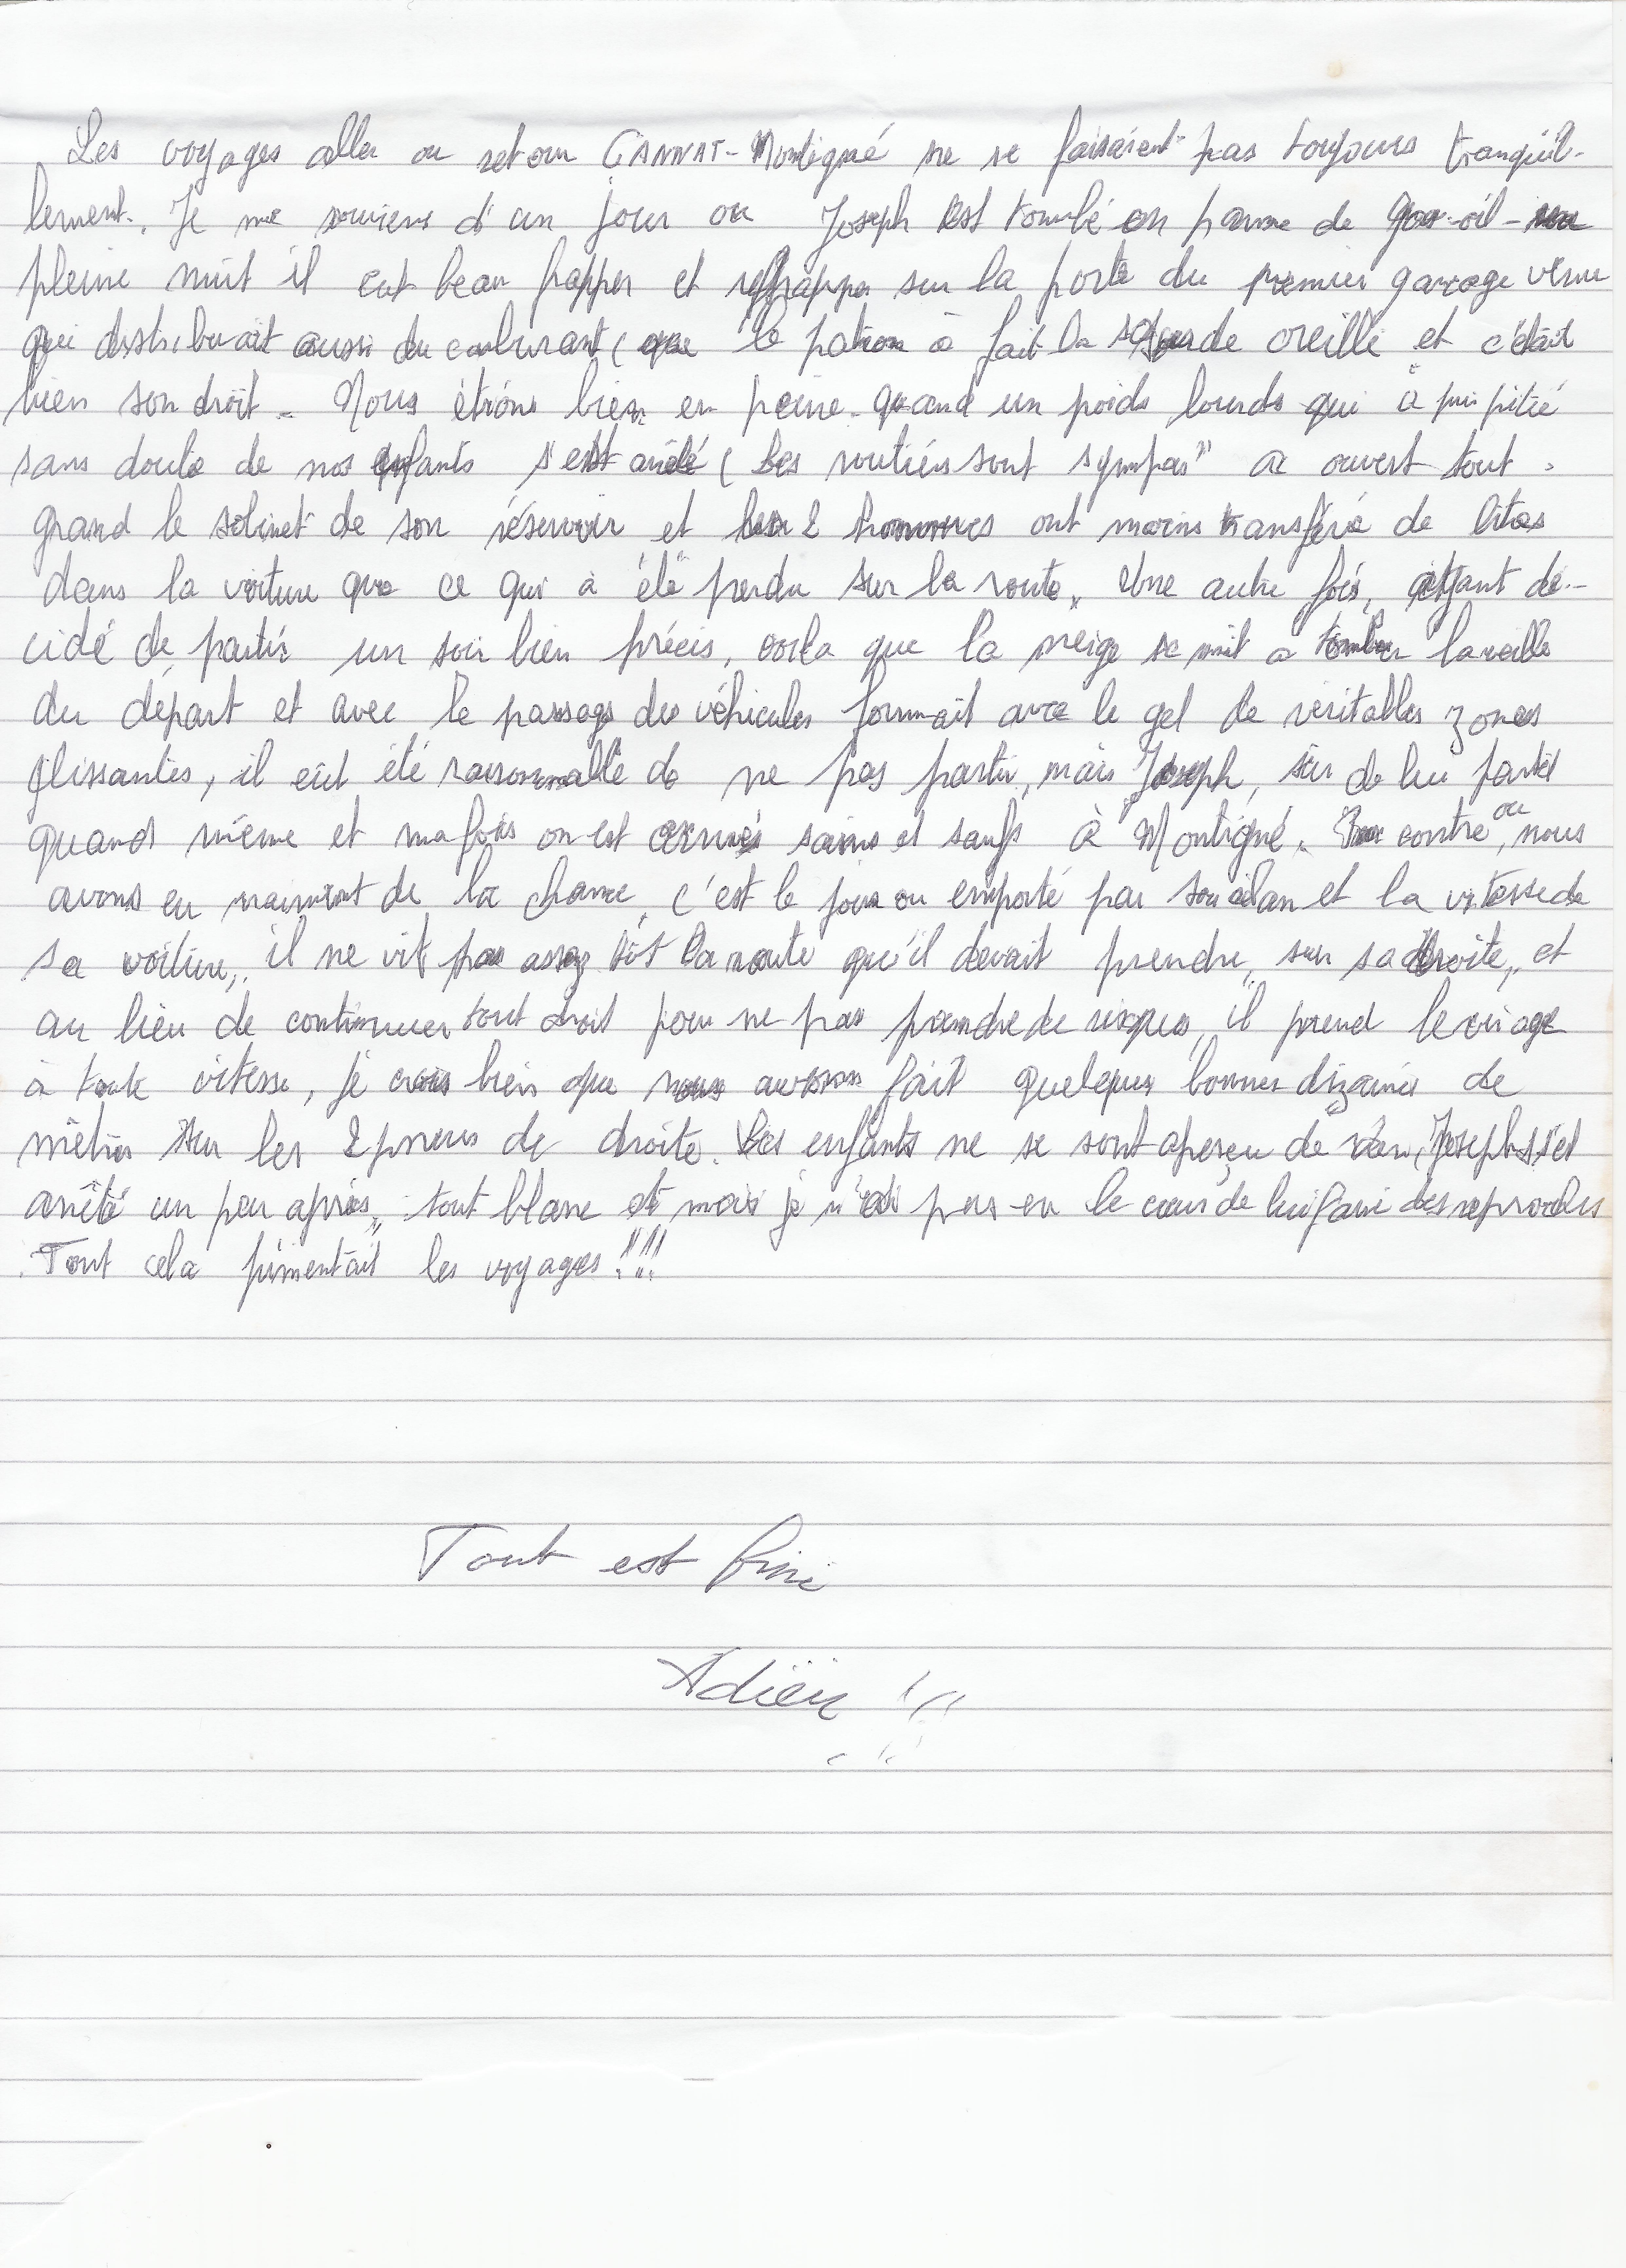 Les voyages aller ou retour GANNAT-Montigné ne se faisaient pas toujours tranquil-
lement. Je me souviens d'un jour ou Joseph est tombé en panne de gas-oil - en
pleine nuit il eut beau frapper et reffrapper sur la porte du premier garage venu
qui distribuait aussi du carburant, que le patron à fait la sourde oreille et c'était
bien son droit. Nous étions bien en peine quand un poids lourds qui à pris pitié
sans doute de nos enfants s'est arrêté (les routiers sont sympas" a ouvert tout
grand le robinet de son réservoir et les 2 hommes ont moins transféré de litres
dans la voiture que ce qui à été perdu sur la route. Une autre fois, ayant dé-
cidé de partir un soir bien précis, voila que la neige se mit a tomber la veille
du départ et avec le passage des véhicules formait avec le gel de véritables zones
glissantes, il eût été raisonnable de ne pas partir, mais Joseph, sûr de lui partit
quand même et ma fois on est arrivés sains et saufs à Montigné. Par contre, ou nous
avons eu vraiment de la chance, c'est le jour ou emporté par son élan et la vitesse de
sa voiture, il ne vit pas assez tôt la route qu'il devait prendre, sur sa droite, et
au lieu de continuer tout droit pour ne pas prendre de risques, il prend le virage
à toute vitesse, je crois bien que nous avons fait quelques bonnes dizaines de
mètres sur les 2 pneus de droite. Les enfants ne se sont aperçu de rien, Joseph s'est
arrêté un peu après, tout blanc et mais je n'ai pas eu le cœur de lui faire des reproches
. Tout cela pimentait les voyages !!!
Tout est fini
Adieu !!!